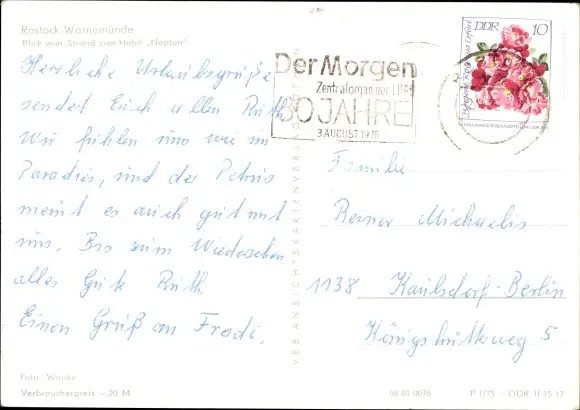 Rostock-Warnemünde
Blick vom Strand zum Hotel „Neptun"
Herzliche Urlaubsgrüße
sendet Euch allen Ruth
Wir fühlen uns wie im
Paradies, und der Petrus
meint es auch gut mit
uns. Bis zum Wiedersehen
alles Gute Ruth
Einen Gruß an Frodi.
Foto: Wanke
Verbraucherpreis –,20 M
VEB ANSICHTSKARTENVERLAG
Der Morgen
Zentralorgan der LDPD
30 JAHRE
3. AUGUST 1975
DDR 10
Familie
Reiner Michaelis
1138 Kaulsdorf-Berlin
Königshütteweg 5
06 01 0076
P 1/75 – DDR II-15 17